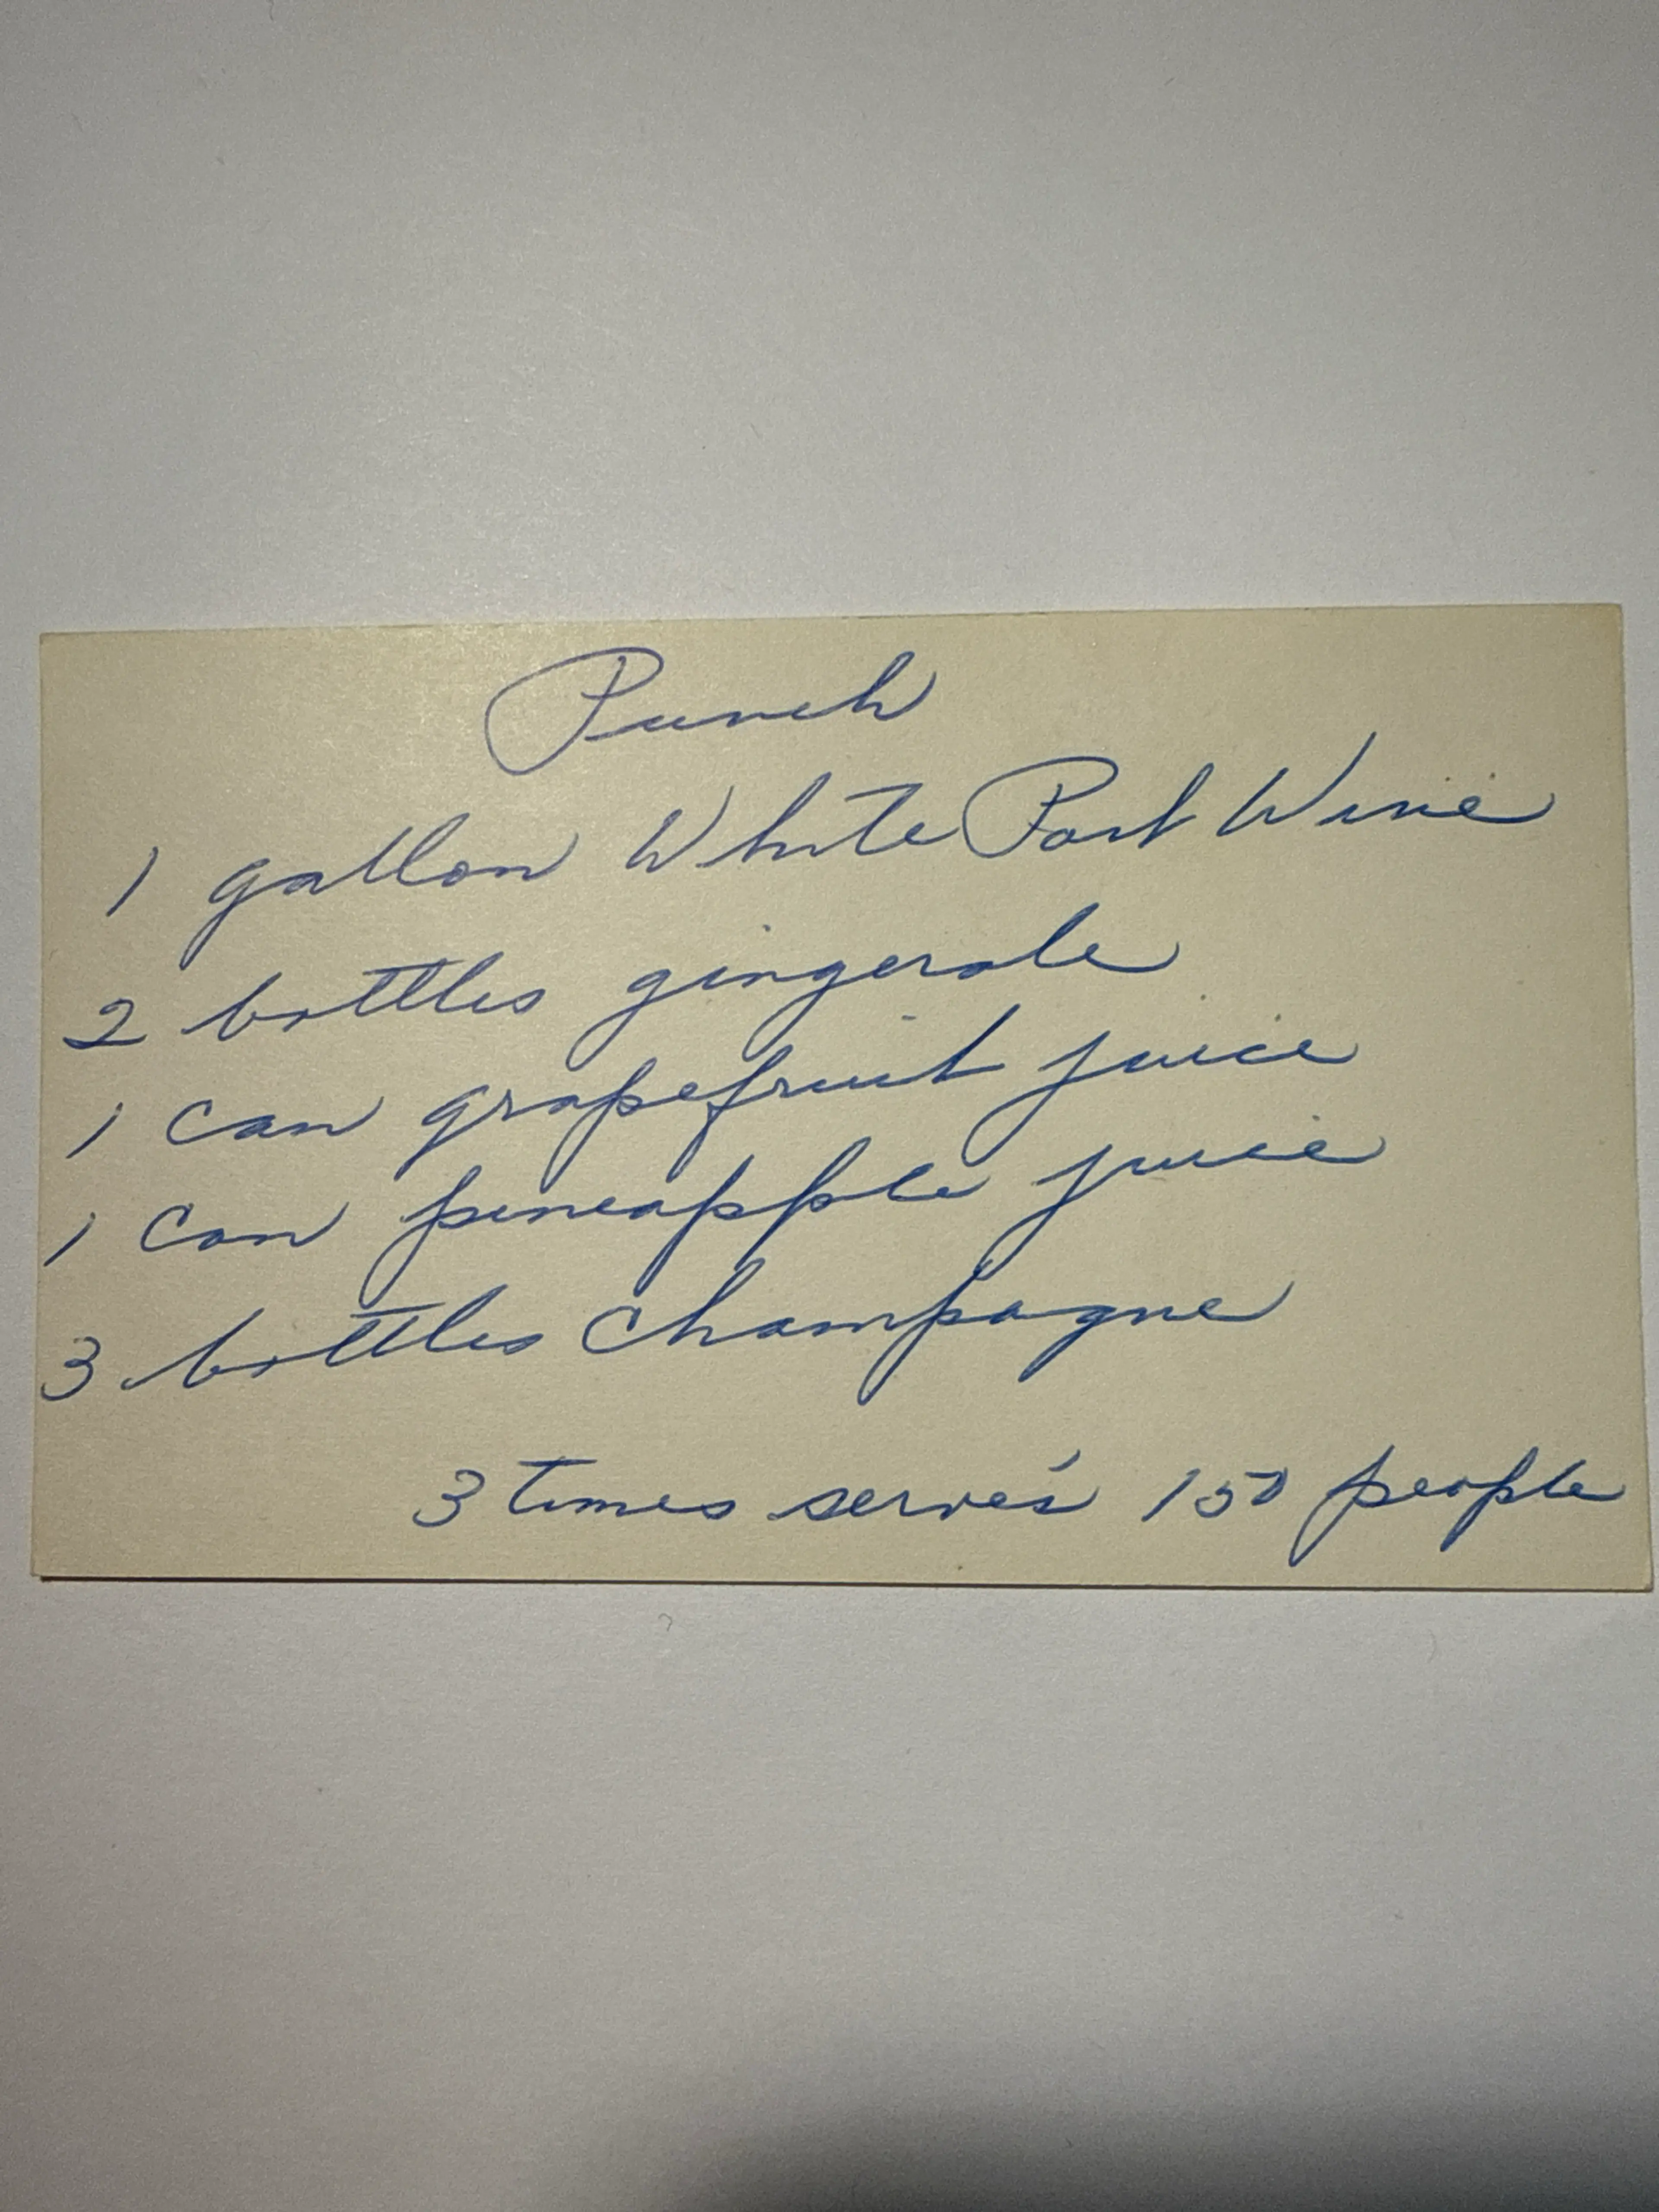 Punch
1 gallon White Port Wine
2 bottles gingerale
1 can grapefruit juice
1 can pineapple juice
3 bottles Champagne
3 times serves 150 people